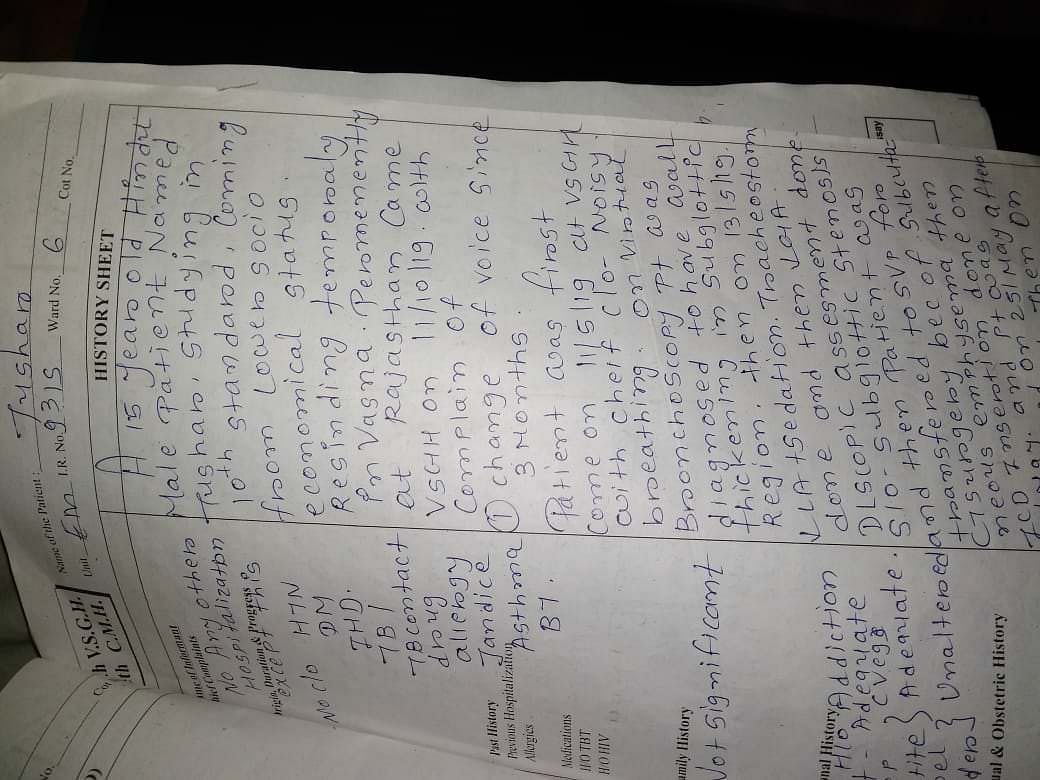 h V.S.G.H.
C.M.H.
Name of the Patient: Tushar
Unit. Em I.R. No. 9315 Ward No. 6 Cot No.
HISTORY SHEET
A 15 Year old Hindu
Male Patient Named
Tushar, studying in
10th standard, Coming
from Lower socio
economical status.
Resinding temporaly
in Vasna. Permenently
at Rajasthan Came
VSGH on 11/10/19. with
Complain of
① change of voice since
3 Months.
Patient was first
come on 11/5/19 at VSGH
with cheif c/o - Noisy
breathing. on virtual
Bronchoscopy Pt was
diagnosed to have wall
thickening in subglottic
Region. then on 13/5/19.
LLA + Sedation. Tracheostom
done and then LOHA.
DLscopic assesment done.
S/O - subglottic stenosis
and then Patient was
transfered to SVP for
CTsurgery bec of subcuta-
neous emphysema then
ICD Insertion done on
and Pt was after
25 May
then on
nt Complaints
No Any other
Hospitalization
Origin, Duration & Progress
except this
No c/o HTN
DM
IHD.
TB
TB contact
drug
allergy
Jandice
Asthma
BT.
Past History
Previous Hospitalization
Allergies
Medications
H/O TBT
H/O HIV
amily History
Not significant
nal History
H/o Addiction
- Adequate
(Veg)
Adequate.
Unaltered
al & Obstetric History